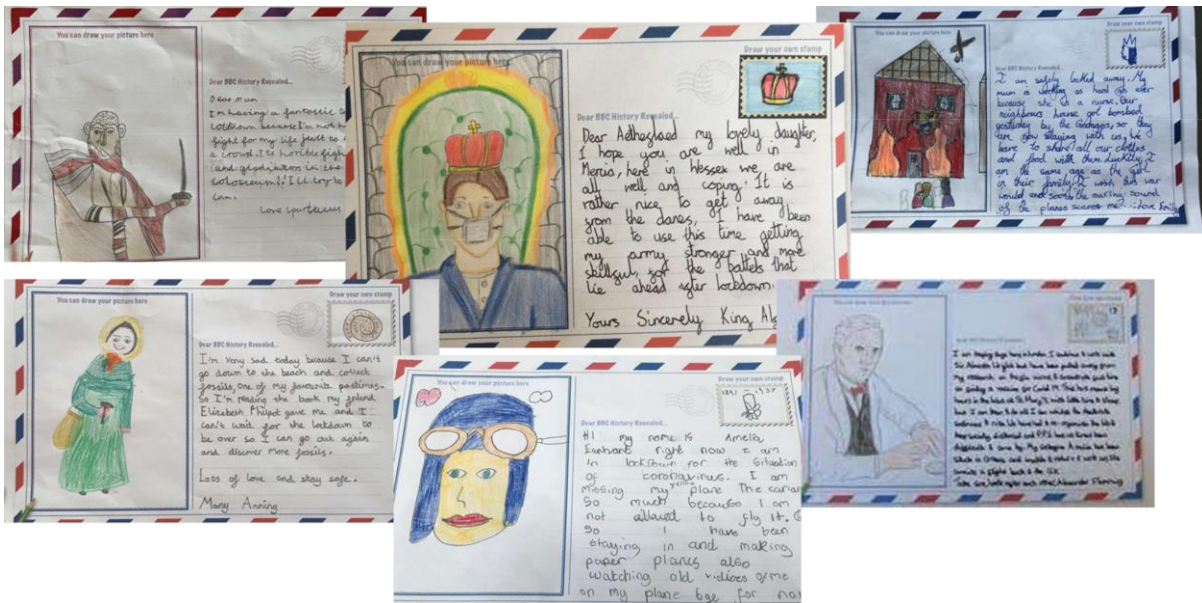 You can draw your picture here
Dear BBC History Revealed...
Dear Mum
I'm having a fantastic
lockdown because I'm not h
fight for my life just to
a crowd. It's horrible figh
(and gladiators in the
colosseum!) I'll try to
can.
Love Spartacus
You can draw your picture here
Draw your own stamp
Dear BBC History Revealed...
Dear Aethoglaed my lovely daughter,
I hope you are well in
Mercia, here in Wessex we are
all well and coping. It is
rather nice to get away
from the danes, I have been
able to use this time getting
my army stronger and more
skillful, for the battels that
lie ahead after lockdown.
Yours Sincerely King Al
You can draw your picture here
Draw your own stamp
Dear BBC History Revealed...
I am safely locked away. My
mum is working as hard as ever
because she is a nurse. Our
neighbours house got bombed
yesterday by the so they
are now staying with us. We
have to share all our clothes
and food with them. Luckily, I
am the same age as the girl
in their family. I wish this war
would end soon, the sound
of the planes scares me. Love Emily
You can draw your picture here
Draw your own stamp
Dear BBC History Revealed...
I'm very sad today because I can't
go down to the beach and collect
fossils, one of my favourite pastimes.
So I'm reading the book my friend
Elizabeth Philpot gave me and I
can't wait for the lockdown to
be over so I can go out again
and discover more fossils.
Loss of love and stay safe.
Mary Anning
You can draw your picture here
Draw your own stamp
1897 - 1937
Dear BBC History Revealed...
HI my name is Amelia
Earhart right now I am
in lockdown for the situation
of coronavirus. I am
missing my yellow plane The canar
so much because I am
not allowed to fly it.
So I have been
staying in and making
paper planes also
watching old vidioes of me
on my plane bye for now
I am staying here in London. I continue to work with
but have been pulled away from
my research on
to
hours in the labs at St Mary's with little time to sleep,
but I am
and P.P.E has at times been
stuck in Greece and
a flight back to the U.K.
Take care, Alexander Flemming